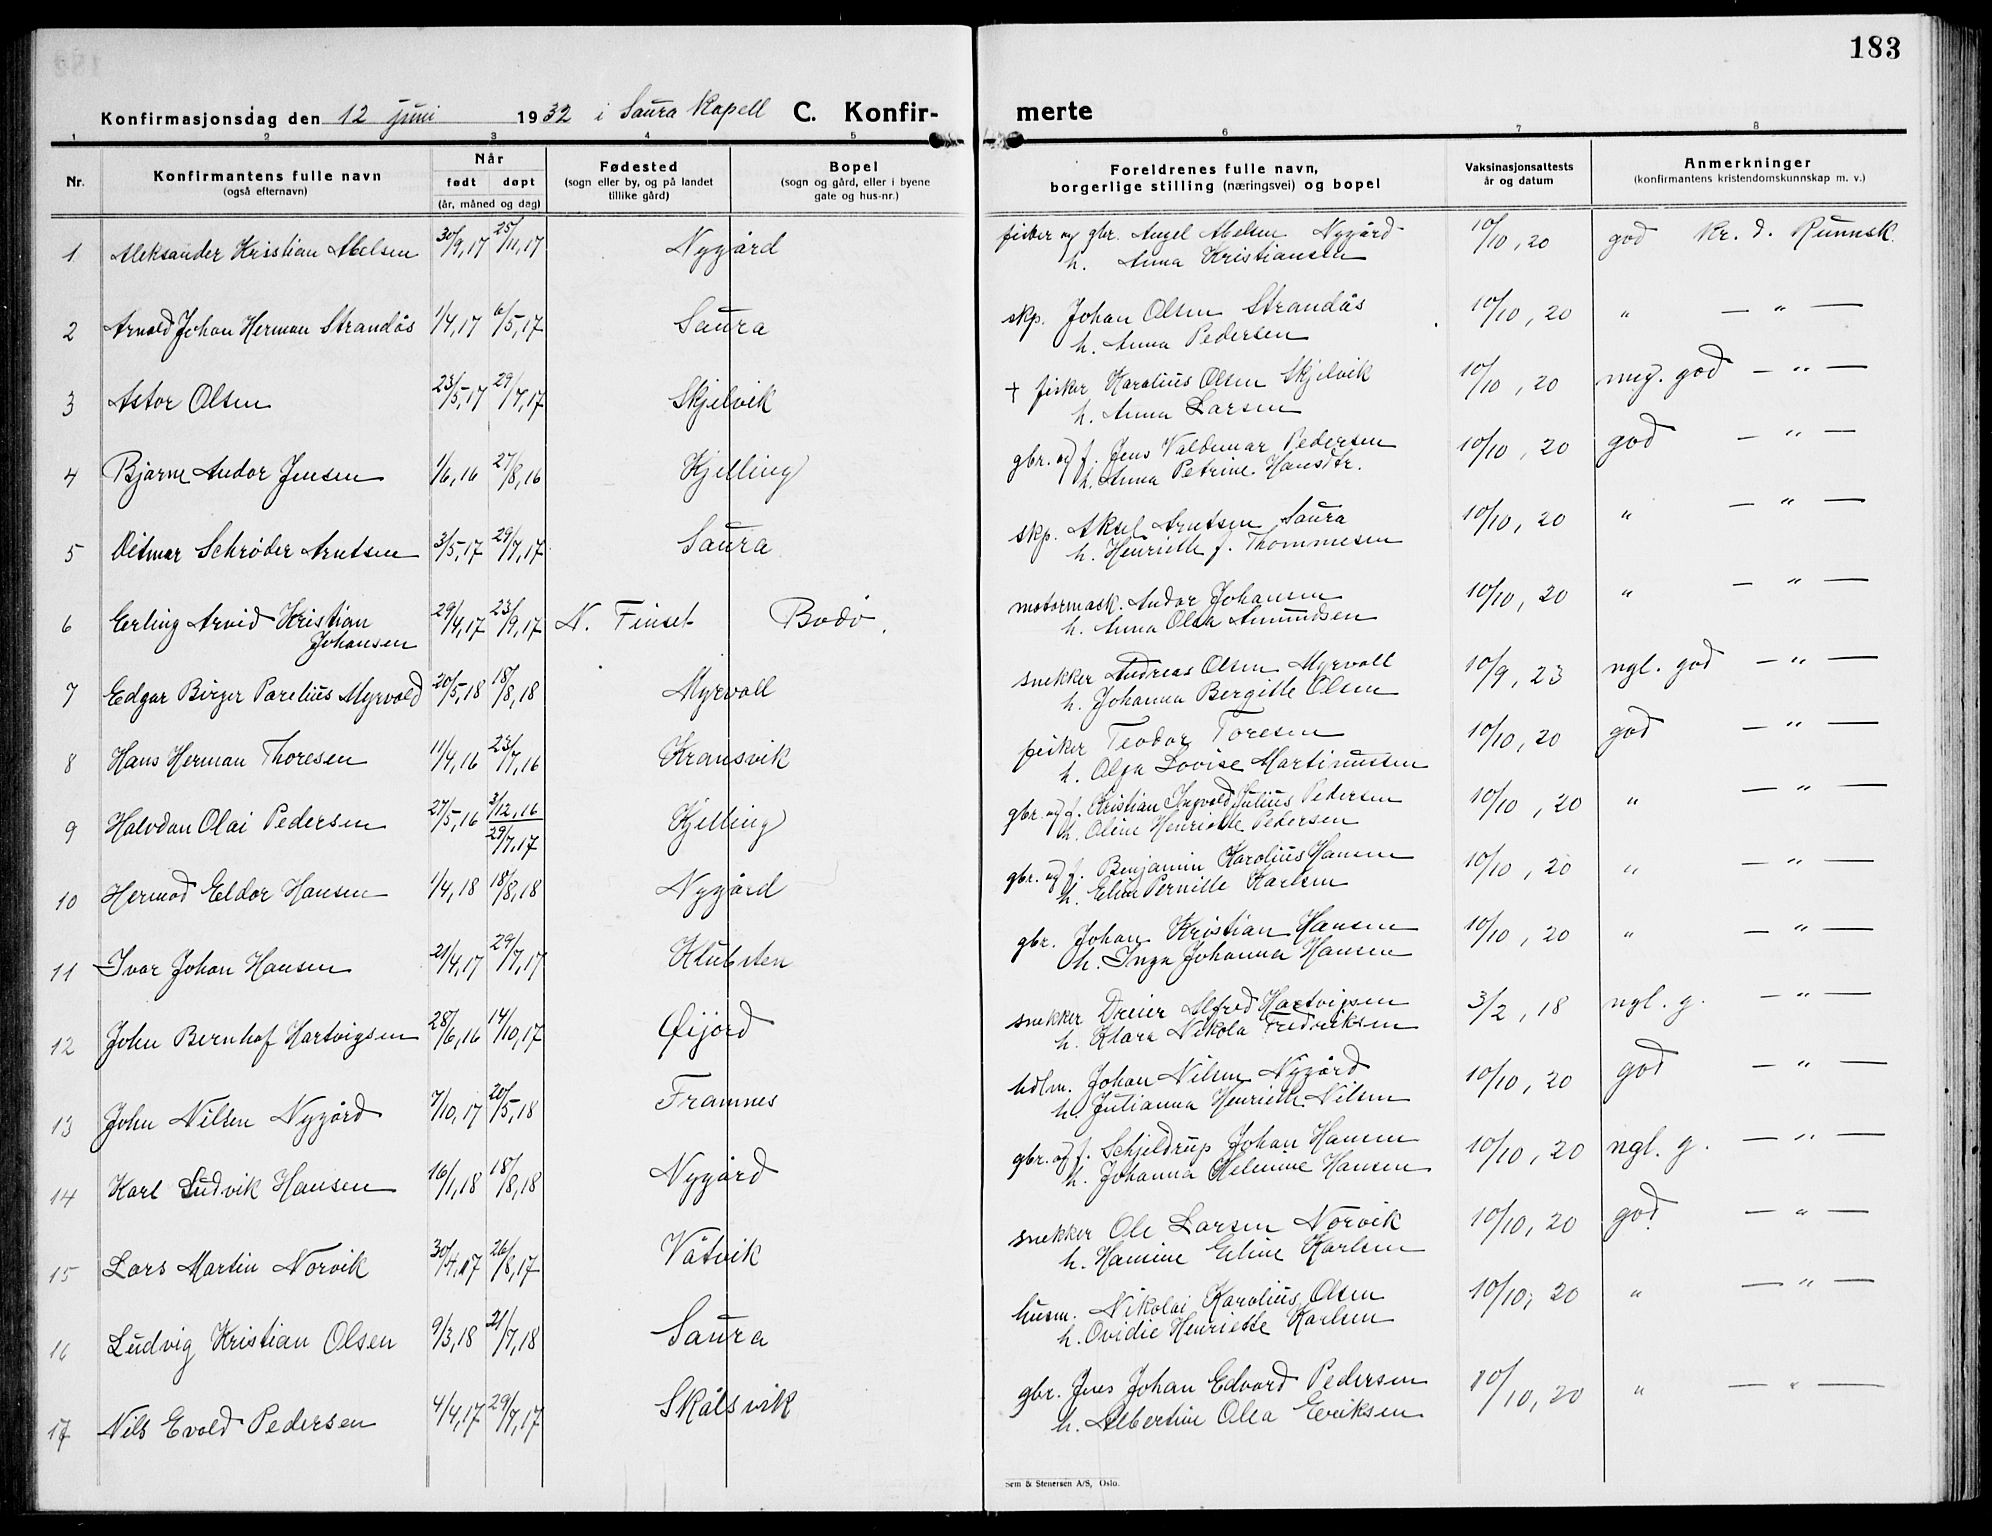 183
Konfirmasjonsdag den 12 juni 1932 i Saura Kapell C. Konfir- merte
1 2 3 4 5 6 7 8
Nr. Konfirmantens fulle navn (også efternavn) Når født døpt (år, måned og dag) Fødested (sogn eller by, og på landet tillike gård) Bopel (sogn og gård, eller i byene gate og hus-nr.) Foreldrenes fulle navn, borgerlige stilling (næringsvei) og bopel Vaksinasjonsattests år og datum Anmerkninger (konfirmantens kristendomskunnskap m. v.)
1 Aleksander Kristian Abelsen 30/9,17 25/11,17 Nygård fisker og gbr. Abelsen Nygård 10/10,20 god Kr. d. Kunnsk.
h. Anna Kristiansen
2 Arnold Johan Herman Strandås 1/4,17 6/5,17 Saura skp. Johan Olsen Strandås 10/10,20 " — " —
h. Anna Pedersen
3 Astor Olsen 23/5,17 29/7,17 Skjelvik † fisker Karolius Olsen Skjelvik 10/10,20 meg. god — " —
h. Anna Larsen
4 Bjarne Andor Jensen 1/6,16 27/8,16 Kjelling gbr. og f. Jens Valdemar Pedersen 10/10,20 god — " —
h. Anna Petrine Hansdtr.
5 Ditmar Schrøder Arntsen 3/5,17 29/7,17 Saura skp. Aksel Arntsen Saura 10/10,20 " — " —
h. Henriette f. Thommesen
6 Erling Arvid Kristian Johansen 29/4,17 23/9,17 N. Finset Bodø. motormask. Andor Johansen 10/10,20 " — " —
h. Anna Olea Amundsen
7 Edgar Birger Parelius Myrvold 20/5,18 18/8,18 Myrvoll snekker Andreas Olsen Myrvoll 10/9,23 ngl. god — " —
h. Johanna Bergitte Olsen
8 Hans Herman Thoresen 11/4,16 23/7,16 Kransvik fisker Teodor Toresen 10/10,20 god — " —
h. Olga Lovise Martinussen
9 Halvdan Olai Pedersen 27/5,16 3/12,16 29/7,17 Kjelling gbr. og f. Kristian Ingvald Julius Pedersen 10/10,20 " — " —
h. Oline Henriette Pedersen
10 Hermod Eldor Hansen 1/4,18 18/8,18 Nygård gbr. og f. Benjamin Karolius Hansen 10/10,20 " — " —
h. Eline Pernille Karlsen
11 Ivar Johan Hansen 21/4,17 29/7,17 Klubsten gbr. Johan Kristian Hansen 10/10,20 " — " —
h. Inga Johanna Hansen
12 John Bernhof Hartvigsen 28/6,16 14/10,17 Øijord snekker Dreier Alfred Hartvigsen 3/2,18 ngl. g. — " —
h. Klara Nikola Fredriksen
13 John Nilsen Nygård 7/10,17 20/5,18 Framnes hdlm. Johan Nilsen Nygård 10/10,20 god — " —
h. Julianna Henriette Nilsen
14 Karl Ludvik Hansen 16/1,18 18/8,18 Nygård gbr. og f. Schjeldrup Johan Hansen 10/10,20 ngl. g. — " —
h. Johanna Helmine Hansen
15 Lars Martin Norvik 30/4,17 26/8,17 Våtvik snekker Ole Larsen Norvik 10/10,20 god — " —
h. Hansine Eline Karlsen
16 Ludvig Kristian Olsen 9/3,18 21/7,18 Saura husm. Nikolai Karolius Olsen 10/10,20 " — " —
h. Ovidie Henriette Karlsen
17 Nils Evald Pedersen 4/4,17 29/7,17 Skålsvik gbr. Jens Johan Edvard Pedersen 10/10,20 " — " —
h. Albertine Olea Eriksen
Sem & Stenersen A/S, Oslo.